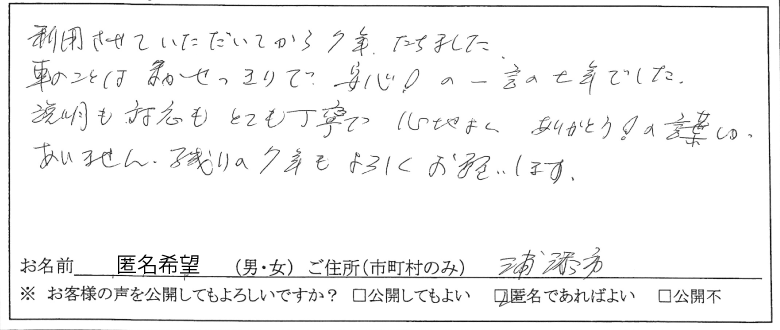 利用させていただいてから7年たちました。
車のことはまかせっきりで、安心！の一言の七年でした。
説明も対応もとても丁寧で心地よく ありがとう！の言葉しか
ありません。残りの7年もよろしくお願いします。
お名前 匿名希望 （男・女） ご住所（市町村のみ） 浦添市
※ お客様の声を公開してもよろしいですか？ □公開してもよい ☑匿名であればよい □公開不